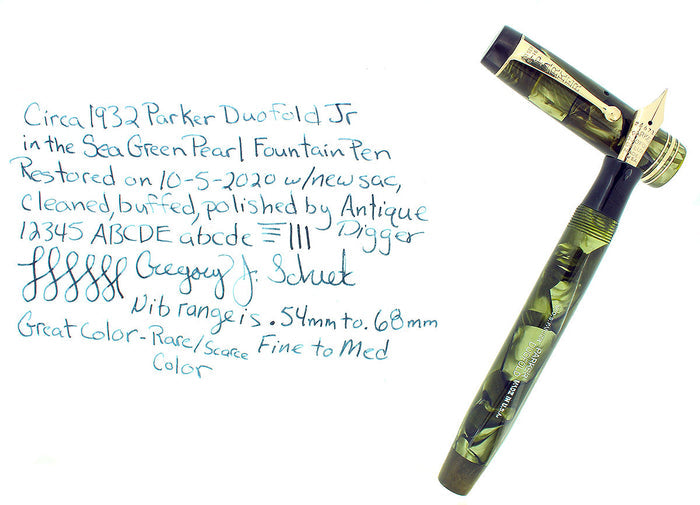 Circa 1932 Parker Duofold Jr
in the Sea Green Pearl Fountain Pen
Restored on 10-5-2020 w/new sac,
cleaned, buffed, polished by Antique
12345 ABCDE abcde Digger
Gregory J.
Nib range is .54mm to .68mm
Great Color - Rare/Scarce Fine to Med
Color
PARKER
DUOFOLD
MADE IN U.S.A.